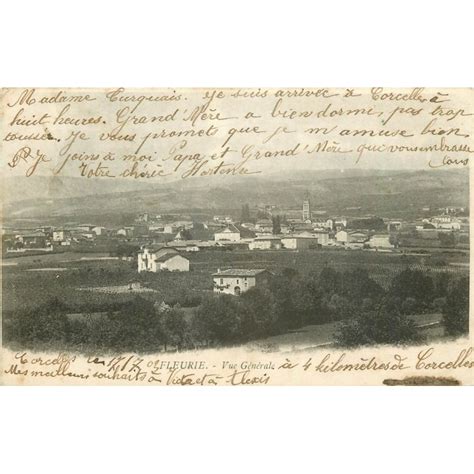 Madame Turquais. Je suis arrivée à Corcelles à
huit heures. Grand'Mère a bien dormi, pas trop
toussée. Je vous promets que je m'amuse bien
Je joins à moi Papa et Grand'Mère que vous embrasse
tous
Votre chérie Hortense
Corcelles le 17/7
FLEURIE. - Vue Générale
à 4 kilomètres de Corcelles
Mes meilleurs souhaits à Victor et à Alexis